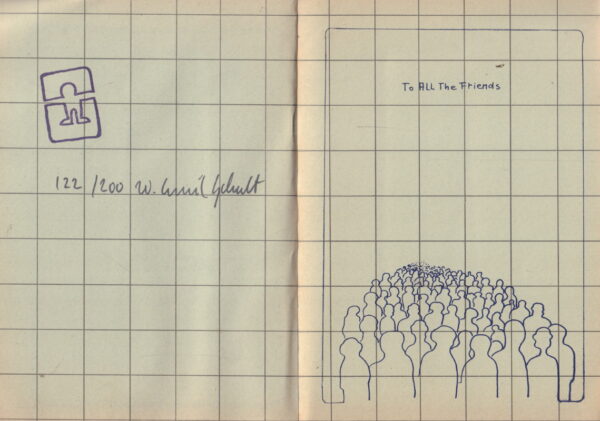 122 /200 W. Emil Schult
To All The Friends